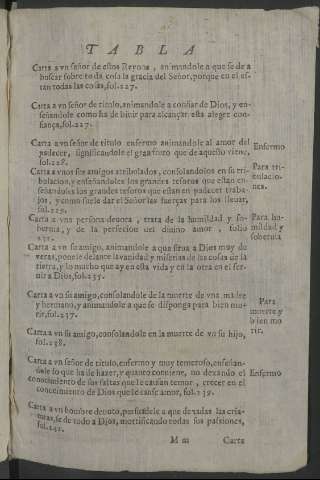 TABLA
Carta a vn señor de estos Reynos, animandole a que se de a
buscar sobre toda cosa la gracia del Señor, porque en el es-
tan todas las cosas, fol.227.
Carta a vn señor de titulo, animandole a confiar de Dios, y en-
señandole como ha de biuir para alcançar esta alegre con-
fiança, fol.227.
Carta a vn señor de titulo enfermo animandole al amor del
padecer, significandole el gran fruto que de aquesto viene,
fol.228.
Enfermo
Carta a vnos señores atribulados, consolandolos en su tri-
bulacion, y enseñandoles los grandes tesoros que estan en-
señandoles los grandes tesoros que estan en padecer traba-
jos, y como suele dar el Señor las fuerças para los lleuar,
fol.229.
Para tri-
bulacio-
nes.
Carta a vna persona deuota, trata de la humildad y so-
beruia, y de la perfecion del diuino amor, folio
Para hu-
mildad y
soberuia
Carta a vn su amigo, animandole a que sirua a Dios muy de
veras, ponele delante la vanidad y miserias de las cosas de la
tierra, y lo mucho que ay en esta vida y en la otra en el ser-
uir a Dios, fol.235.
Carta a vn su amigo, consolandole de la muerte de vna madre
y hermano, y animandole a que se disponga para bien mo-
rir, fol.237.
Para
muerte y
bien mo
rir.
Carta a vn su amigo, consolandole en la muerte de vn su hijo,
fol.238.
Carta a vn señor de titulo, enfermo y muy temeroso, enseñan-
dole lo que ha de hazer, y quanto conuiene, no dexando el
conocimiento de sus faltas que le causan temor, crecer en el
conocimiento de Dios que le cause amor, fol.239.
Enfermo
Carta a vn hombre deuoto, persuadele a que dexadas las cria-
turas, se de todo a Dios, mortificando todas sus passiones,
fol.241.
M m Carta